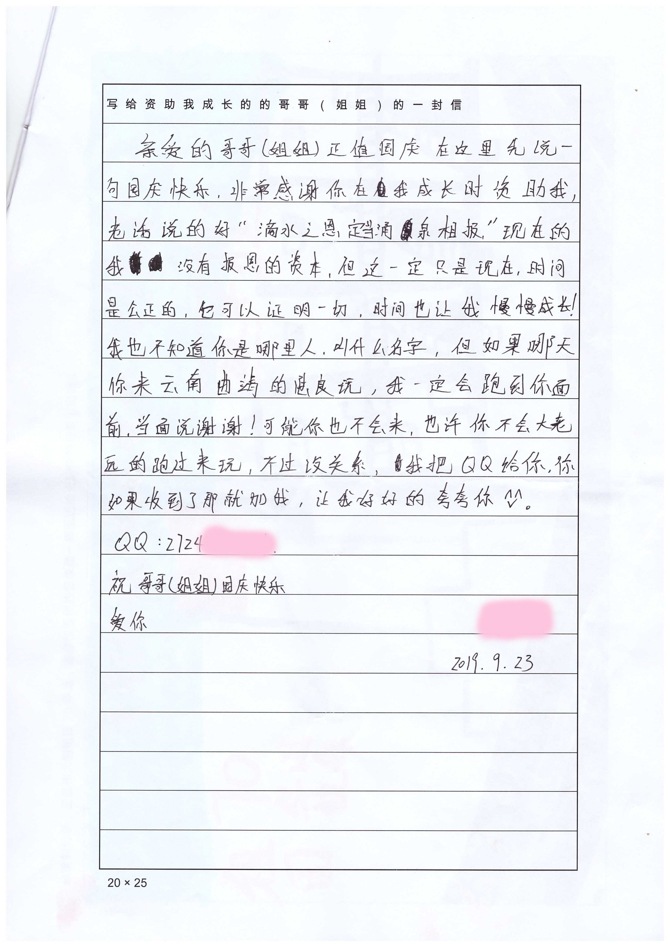 写给资助我成长的的哥哥(姐姐)的一封信
亲爱的哥哥(姐姐)正值国庆在这里先说一
句国庆快乐,非常感谢你在我成长时资助我,
老话说的好“滴水之恩定当涌泉相报,”现在的
我没有报恩的资本,但这一定只是现在,时间
是公正的,它可以证明一切,时间也让我慢慢成长!
我也不知道你是哪里人,叫什么名字,但如果哪天
你来云南曲靖的宜良玩,我一定会跑到你面
前,当面说谢谢!可能你也不会来,也许你不会大老
远的跑过来玩,不过没关系,我把QQ给你,你
如果收到了那就加我,让我好好的夸夸你。
QQ:2724
祝哥哥(姐姐)国庆快乐
爱你
2019.9.23
20×25